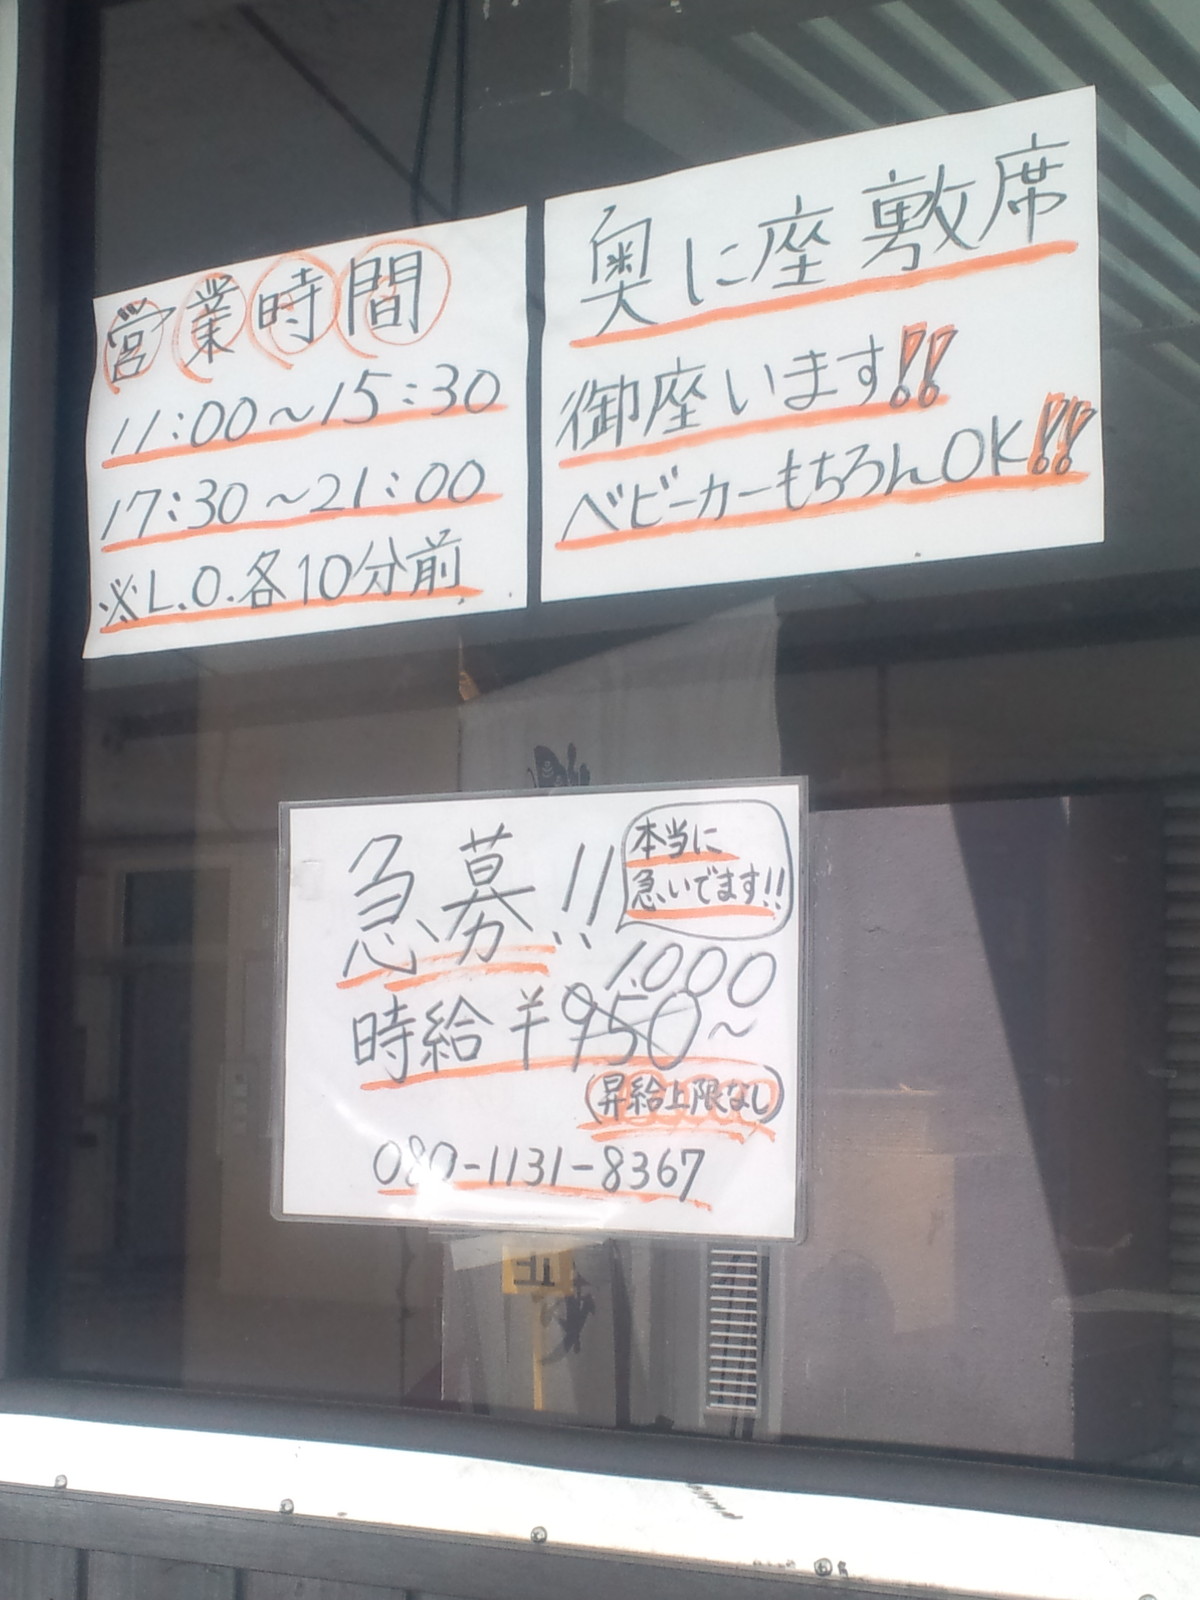 営業時間
11:00～15:30
17:30～21:00
※L.O.各10分前
奥に座敷席
御座います!!
ベビーカーもちろんOK!!
急募!!
本当に
急いでます!!
1.000
時給¥950～
(昇給上限なし)
080-1131-8367
止